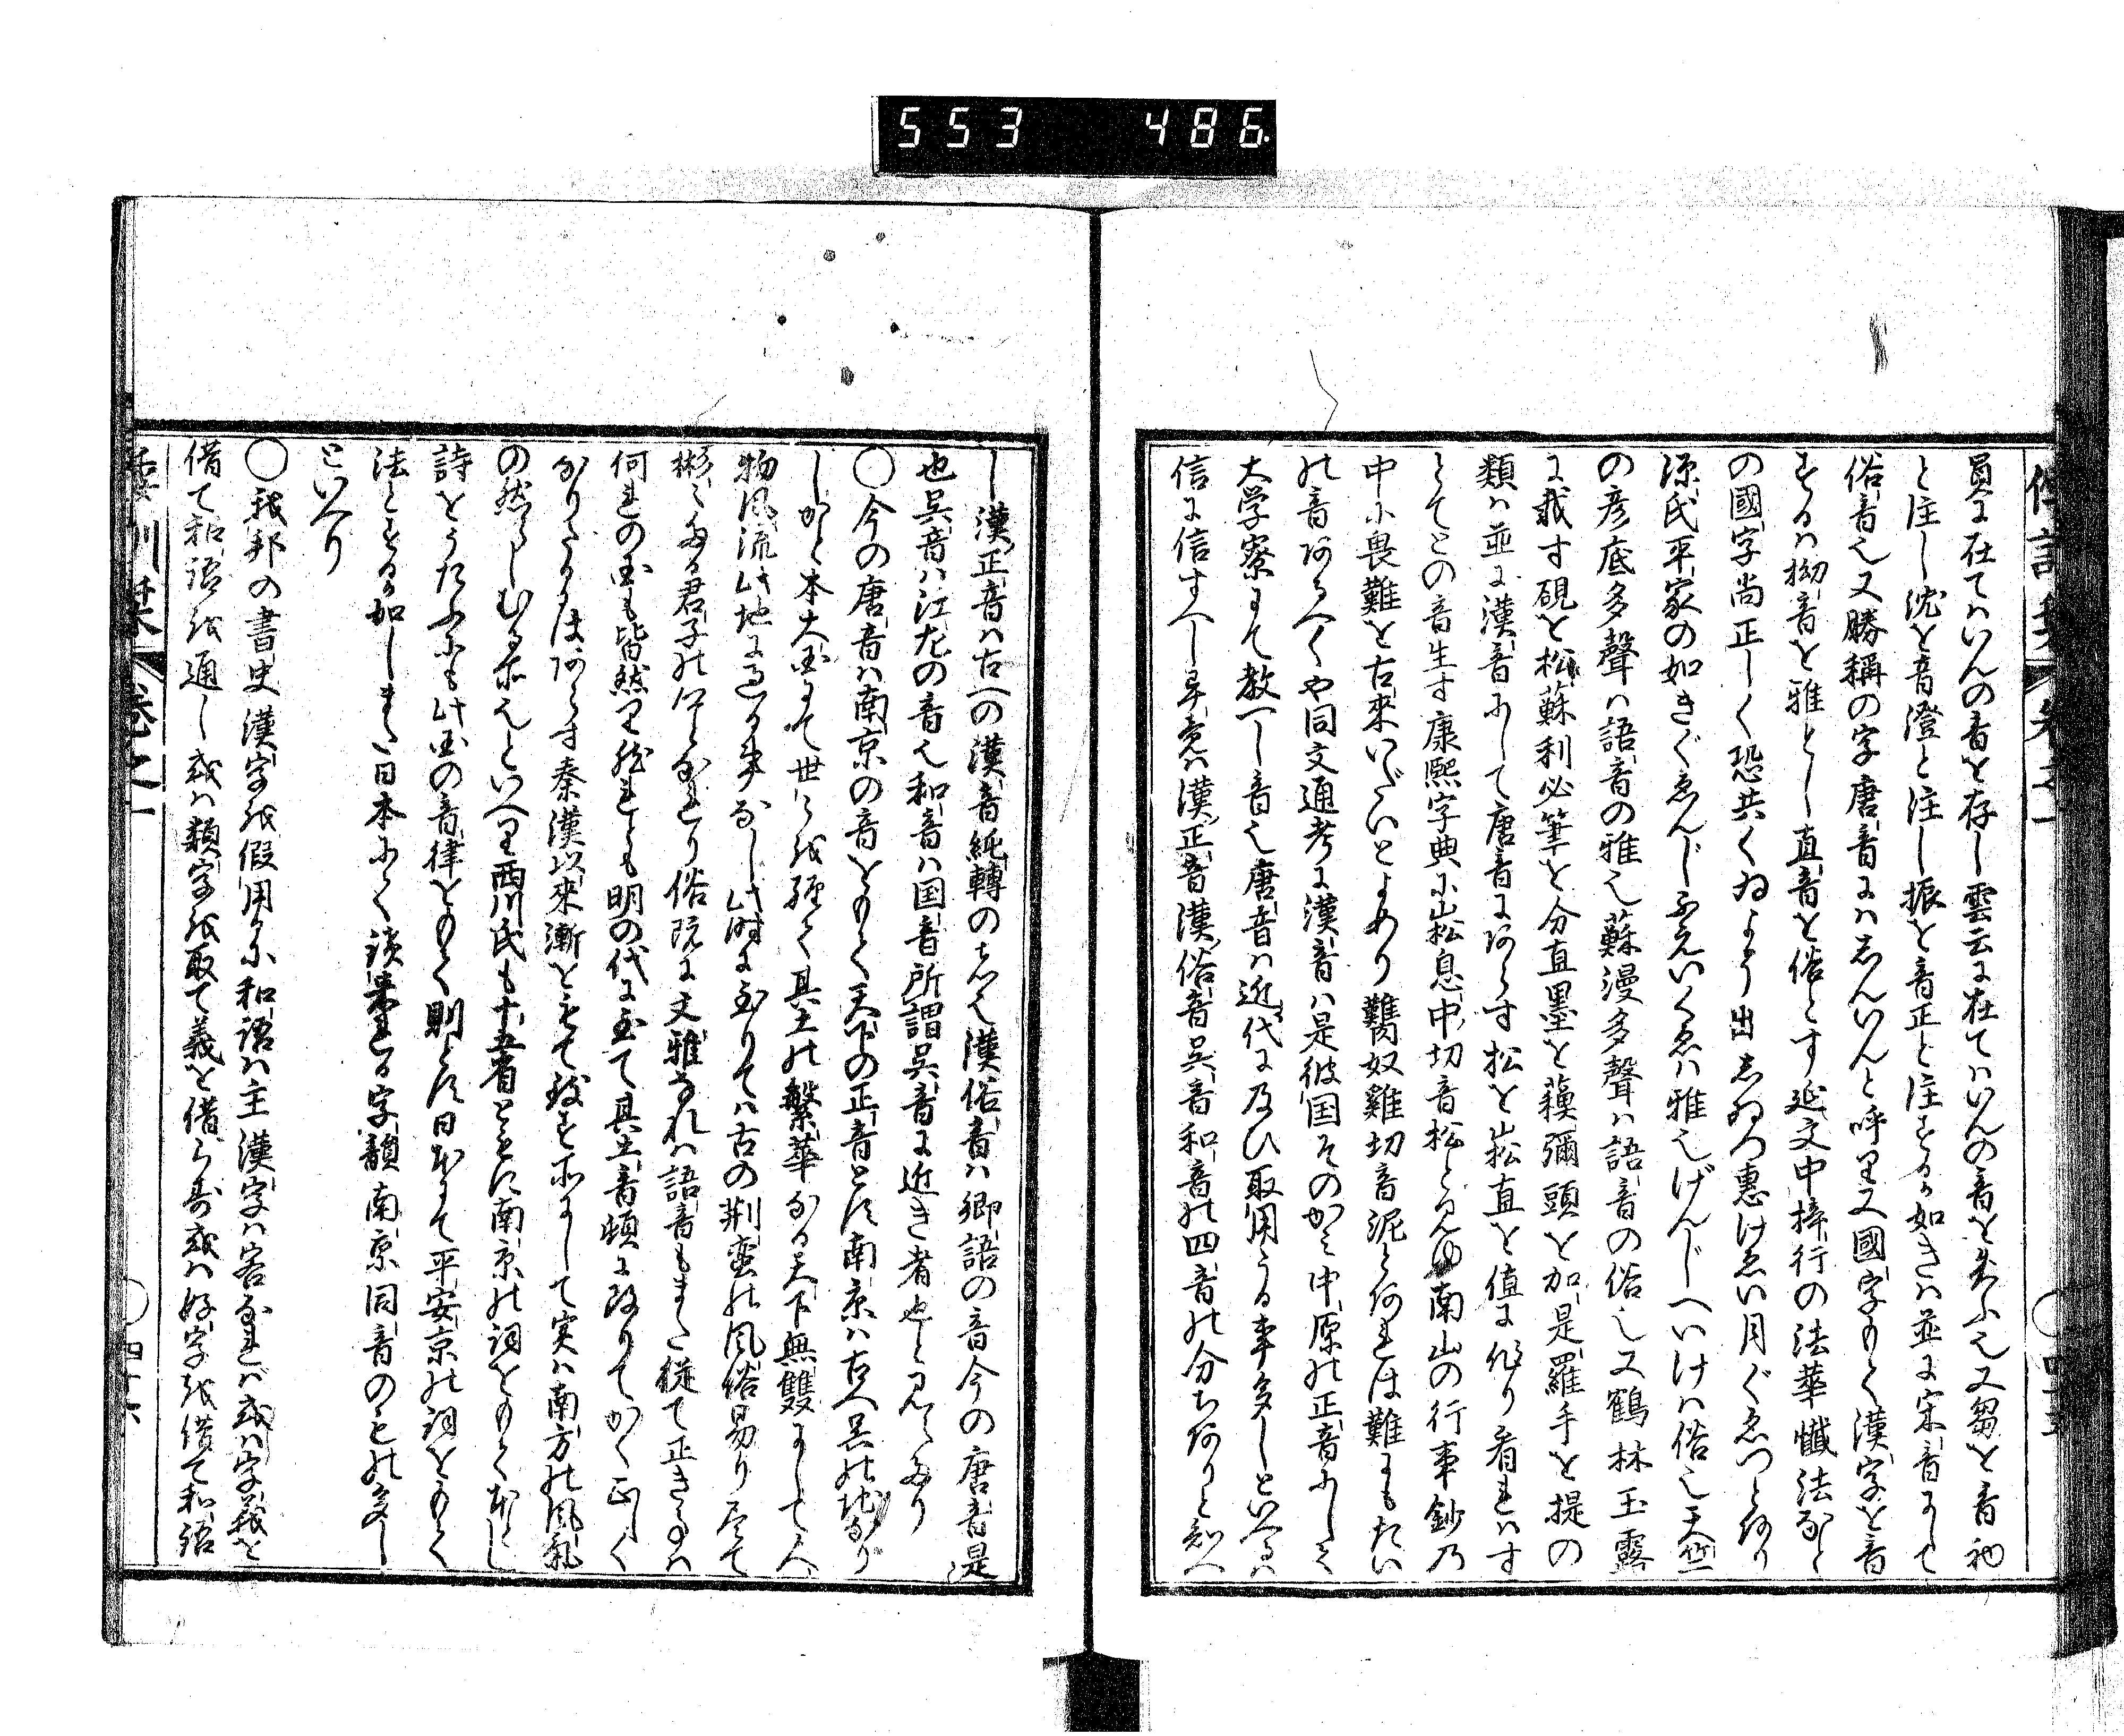 553 486
員に在てハいんの音を存し雲云に在てハいんの音を失ふ也又芻を音初
と注し沈を音澄と注し振を音正と注するか如きハ並に宋音にして
俗音也又勝稱の字唐音にハあんいんと呼里又國字もて漢字を音
するハ拗音を雅とし直音を俗とす延文中摔行の法華懺法なと
の國字尚正しく恐共くゐよう出志ゆつ惠けゑい月ぐゑつと何り
源氏平家の如きぐゑんじふえいくゑハ雅也げんじへいけハ俗也天竺
の彦底多聲ハ語音の雅也蘇漫多聲ハ語音の俗也又鶴林玉露
に載す硯を松蘇利必筆を分直墨を蘓彌頭を加是羅手を提の
類ハ並に漢音にして唐音にあらす松を崧直を値に作り看れハす
とてとの音生す康熙字典に崧息中切音松と見ゆ南山の行事鈔乃
中に畏難を古來いだいとよめり難奴雞切音泥と何れは難にもたい
の音あるへくや同文通考に漢音ハ是彼国そのかミ中原の正音にしミ
大学寮にて教へし音也唐音ハ近代に及ひ取用うる事多しといへるハ
信に信すへし畢竟ハ漢正音漢俗音呉音和音の四音の分ち何りと知へ
し漢正音ハ古への漢音純轉のもの也漢俗音ハ郷語の音今の唐音是
也呉音ハ江左の音也和音ハ国音所謂呉音に近き者也と見えたり
○今の唐音ハ南京の音をもて天下の正音とす南京ハ古へ呉の地なり
しかと本大国にて世々を歴て其土の繁華なる天下無雙にして人
物風流此地に過る事なし此時に至りてハ古の荆蛮の風俗易り尽て
彬々たる君子の作となれり俗既に文雅なれハ語音もまた従て正き事ハ
何れの国も皆然り然れとも明の代に至て其土音頓に改りてかく正しく
なりたるにはあらす秦漢以来漸をもて致す所にして実ハ南方の風氣
の然らしむる所也といへり西川氏も十五省ともに南京の詞をもて本とし
詩をうたふにも此国の音律をもて則とす日本にて平安京の詞をもて
法とするか如しまた日本にて讀来れる字韻南京同音のもの多し
といへり
○我邦の書史漢字を假用るに和語ハ主漢字ハ客なれば或ハ字義を
借て和語を通し或ハ類字を取て義を借らす或ハ好字を借て和語